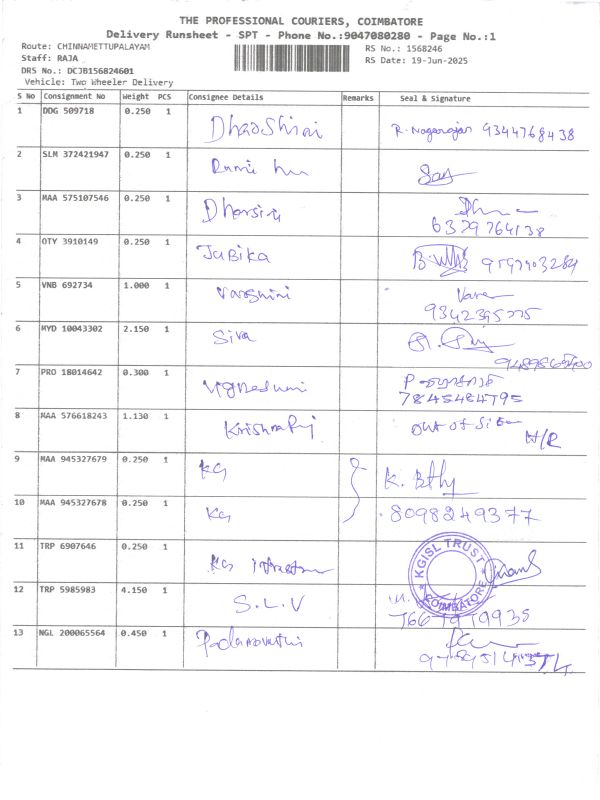 THE PROFESSIONAL COURIERS, COIMBATORE
Delivery Runsheet - SPT - Phone No.:9047080280 - Page No.:1
Route: CHINNAMETTUPALAYAM RS No.: 1568246
Staff: RAJA RS Date: 19-Jun-2025
DRS No.: DCJB156824601
Vehicle: Two Wheeler Delivery
S No Consignment No Weight PCS Consignee Details Remarks Seal & Signature
1 DDG 509718 0.250 1 R. Nagarajan 9344768438
2 SLM 372421947 0.250 1
3 MAA 575107546 0.250 1
6379764138
4 OTY 3910149 0.250 1 Jubika
5 VNB 692734 1.000 1 Varshini
9342395775
6 MYD 10043302 2.150 1 Siva
7 PRO 18014642 0.300 1
7845484795
8 MAA 576618243 1.130 1 Krishna out of
9 MAA 945327679 0.250 1 KG K.
10 MAA 945327678 0.250 1 KG 8098249377
11 TRP 6907646 0.250 1 KG
KGISL TRUST
COIMBATORE
12 TRP 5985983 4.150 1 S.L.V
13 NGL 200065564 0.450 1